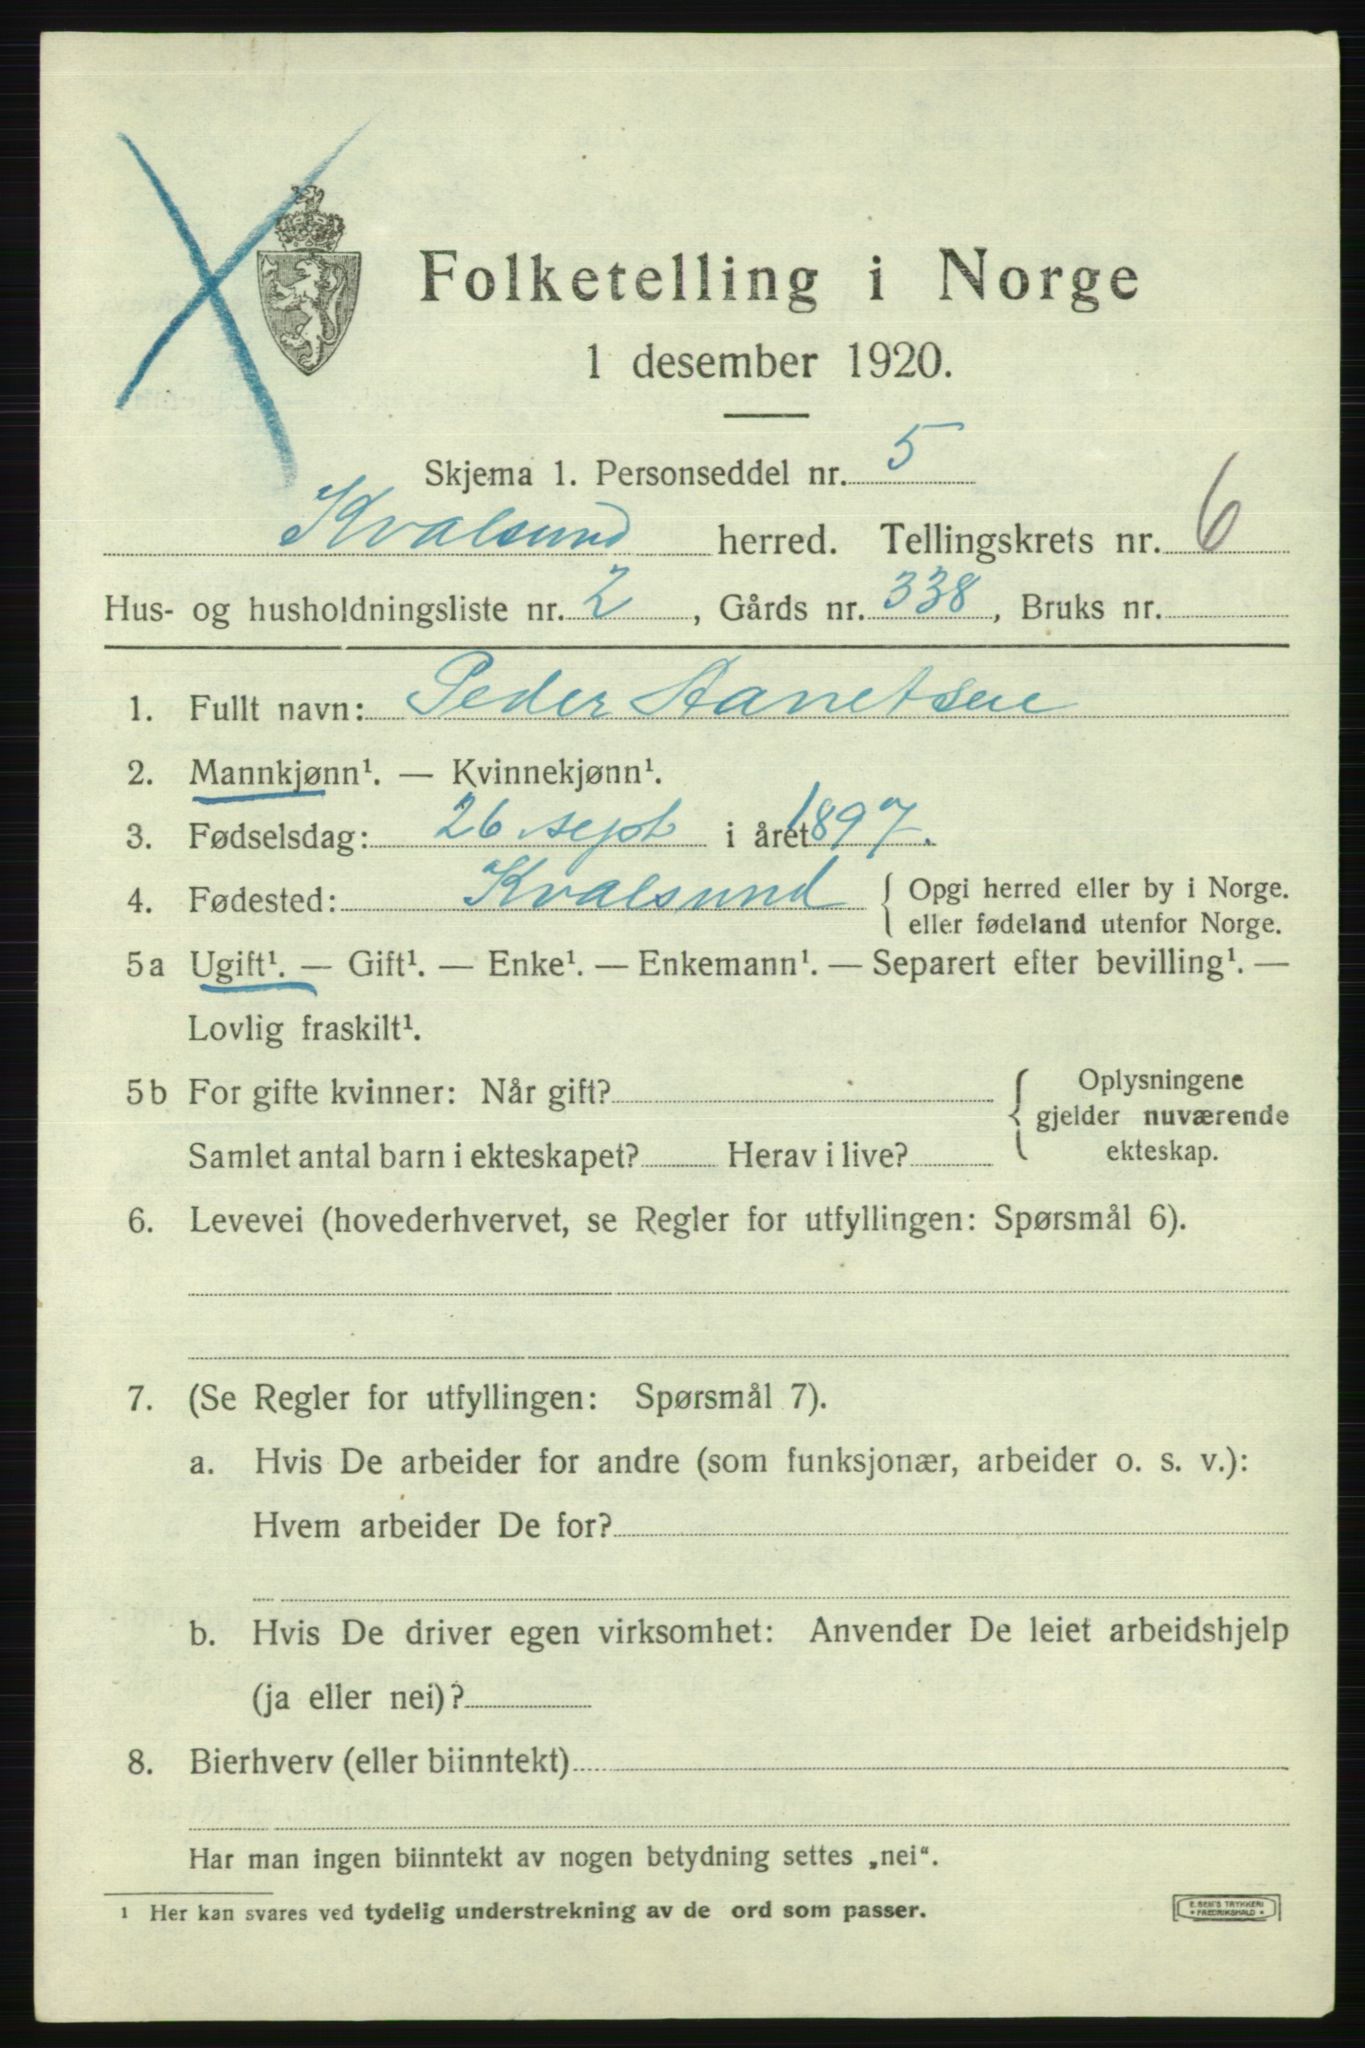 Folketelling i Norge
1 desember 1920.
Skjema 1. Personseddel nr. 5
Kvalsund herred. Tellingskrets nr. 6
Hus- og husholdningsliste nr. 2, Gårds nr. 338, Bruks nr.
1. Fullt navn: Peder
2. Mannkjønn¹. — Kvinnekjønn¹.
3. Fødselsdag: 26 sept i året 1897.
4. Fødested: Kvalsund { Opgi herred eller by i Norge.
eller fødeland utenfor Norge.
5a Ugift¹. — Gift¹. — Enke¹. — Enkemann¹. — Separert efter bevilling¹. —
Lovlig fraskilt¹.
5b For gifte kvinner: Når gift? { Oplysningene
gjelder nuværende
Samlet antal barn i ekteskapet? Herav i live? ekteskap.
6. Levevei (hovederhvervet, se Regler for utfyllingen: Spørsmål 6).
7. (Se Regler for utfyllingen: Spørsmål 7).
a. Hvis De arbeider for andre (som funksjonær, arbeider o. s. v.):
Hvem arbeider De for?
b. Hvis De driver egen virksomhet: Anvender De leiet arbeidshjelp
(ja eller nei)?
8. Bierhverv (eller biinntekt)
Har man ingen biinntekt av nogen betydning settes „nei“.
¹ Her kan svares ved tydelig understrekning av de ord som passer.
E. SEM'S TRYKKERI
• FREDRIKSHALD •